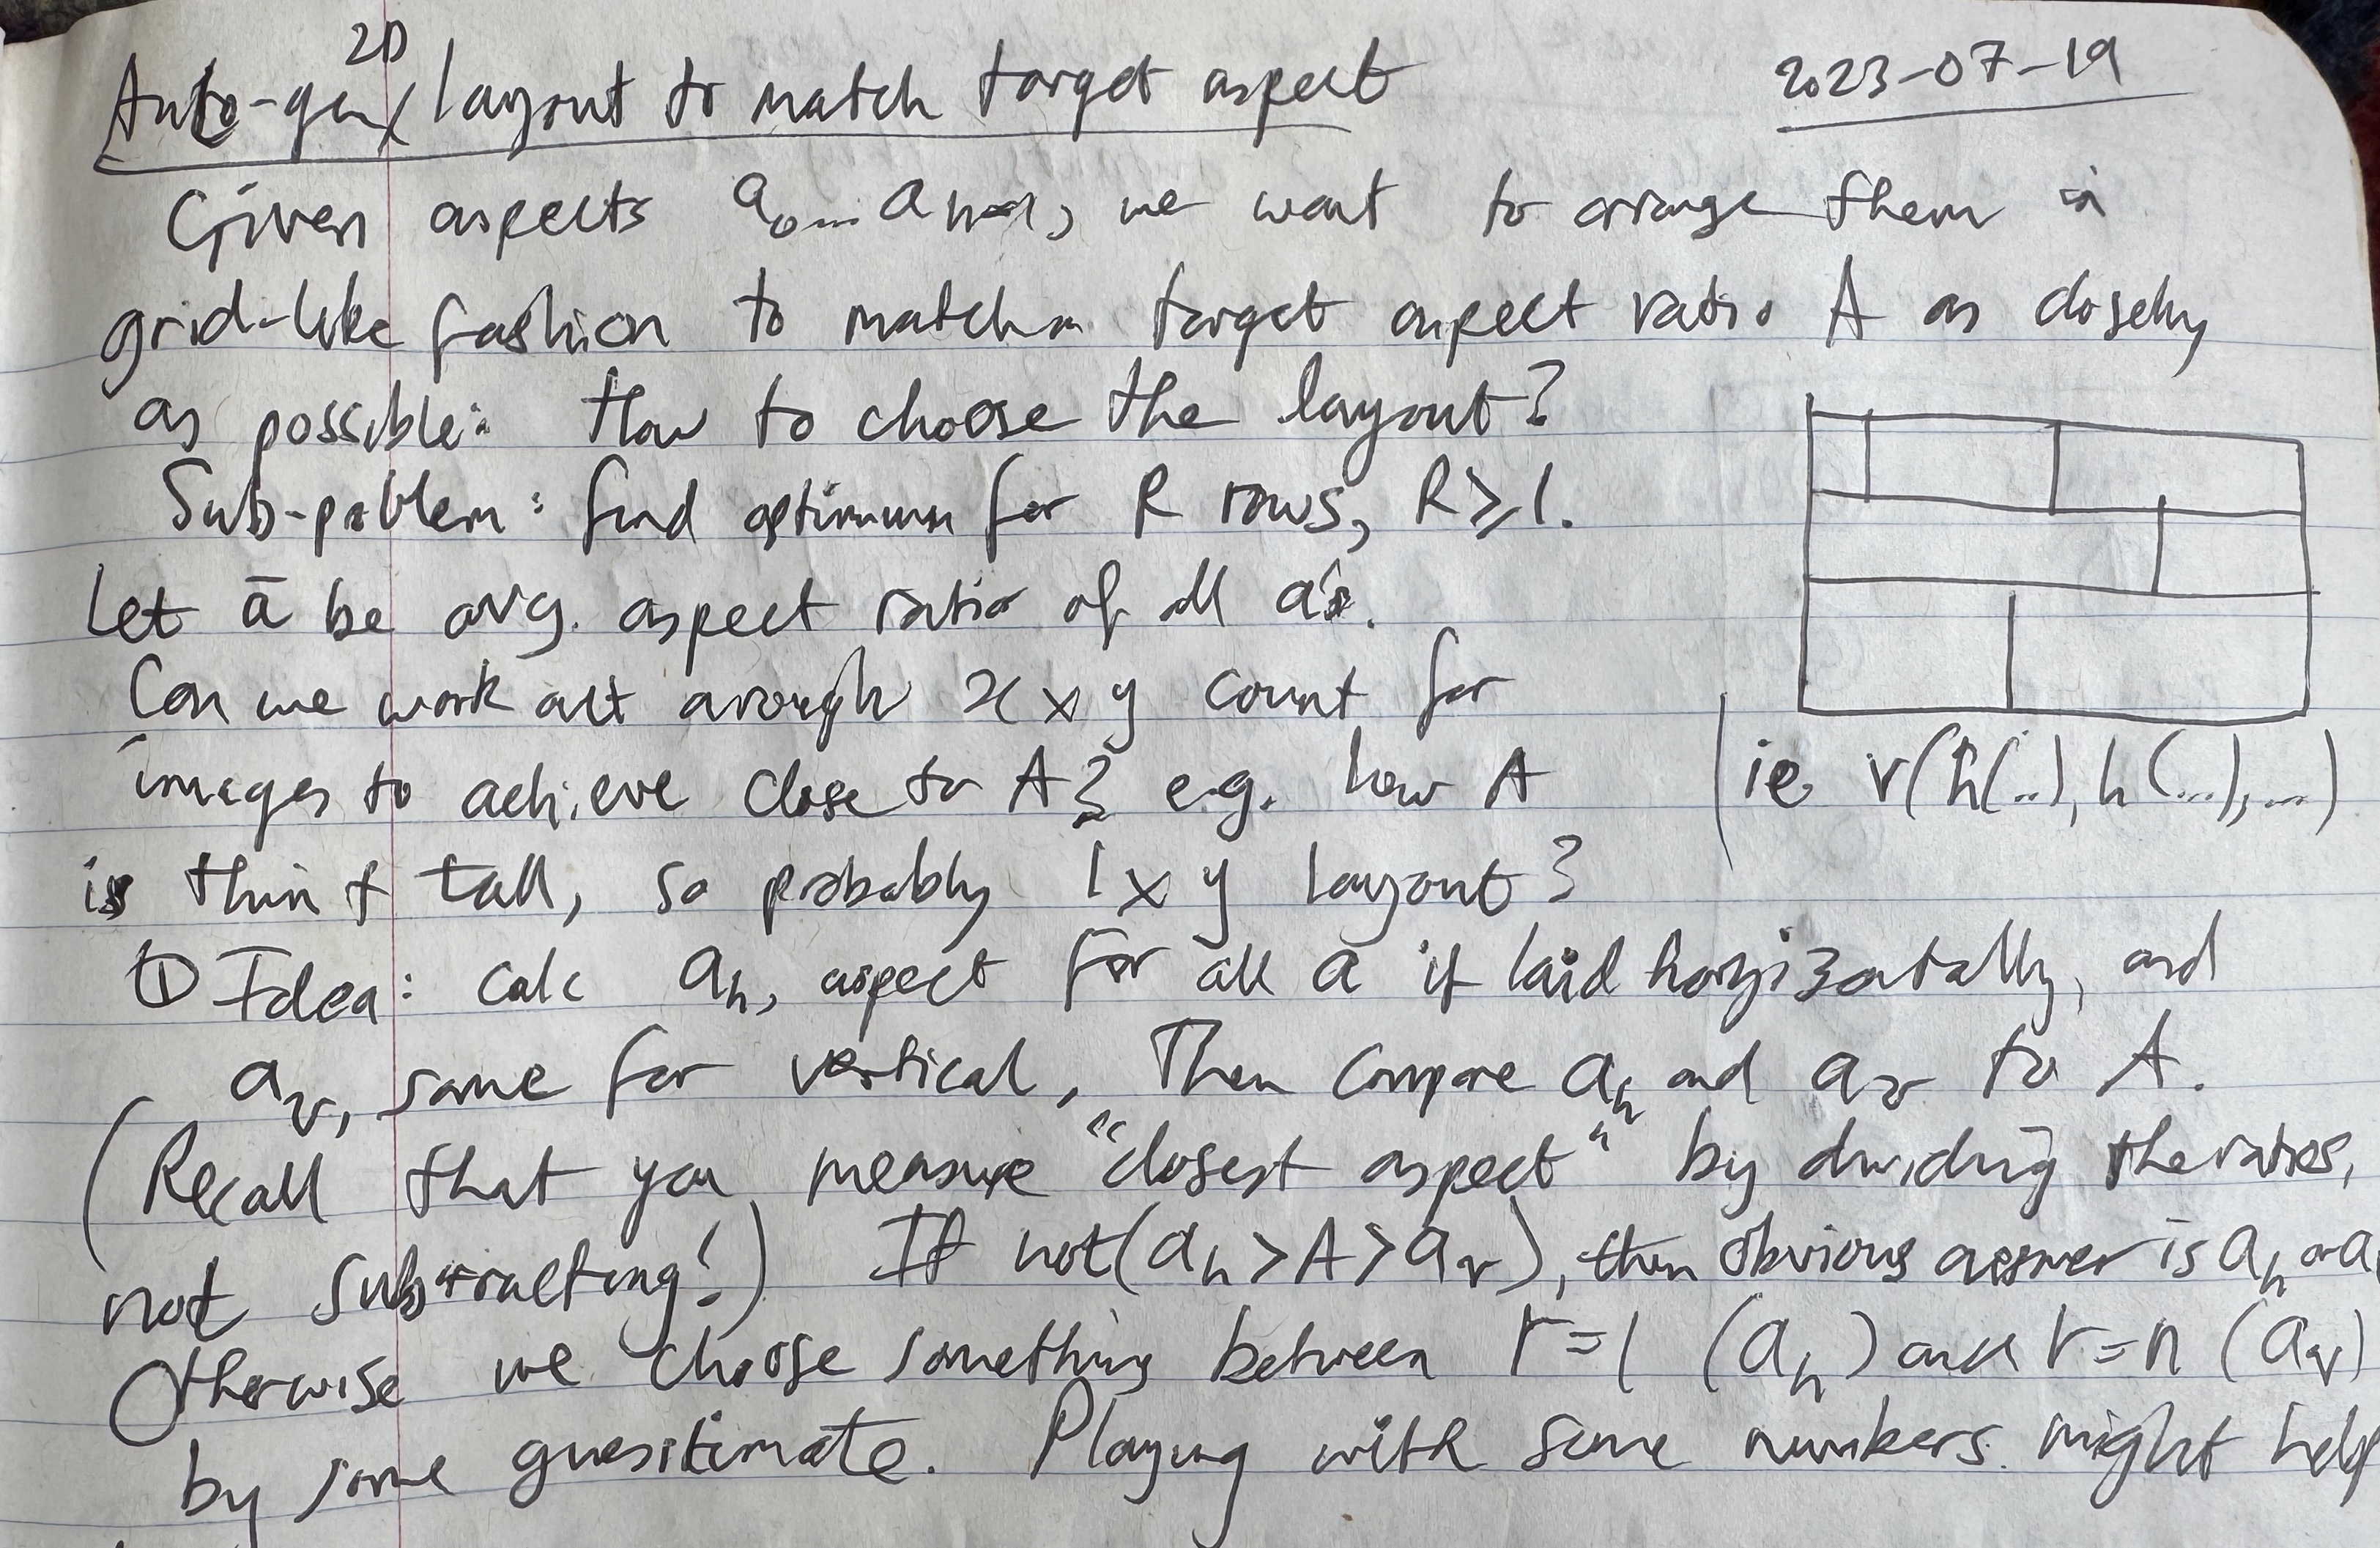 Auto-gen 2D layout to match target aspect 2023-07-19
Given aspects a₀...aₙ₋₁, we want to arrange them in
grid-like fashion to match target aspect ratio A as closely
as possible: How to choose the layout?
Sub-problem: find optimum for R rows, R ≥ 1.
Let ā be avg. aspect ratio of all a's.
Can we work out a rough x × y count for
images to achieve close to A? e.g. low A
(ie v(h(..), h(...), ...)
is thin & tall, so probably 1 × y layout?
① Idea: calc aₕ, aspect for all a if laid horizontally, and
aᵥ, same for vertical. Then compare aₕ and aᵥ to A.
(Recall that you measure "closest aspect" by dividing the ratios,
not subtracting!) If not(aₕ > A > aᵥ), then obvious answer is aₕ or a
Otherwise we choose something between r=1 (aₕ) and r=n (aᵥ)
by some guesstimate. Playing with some numbers might help